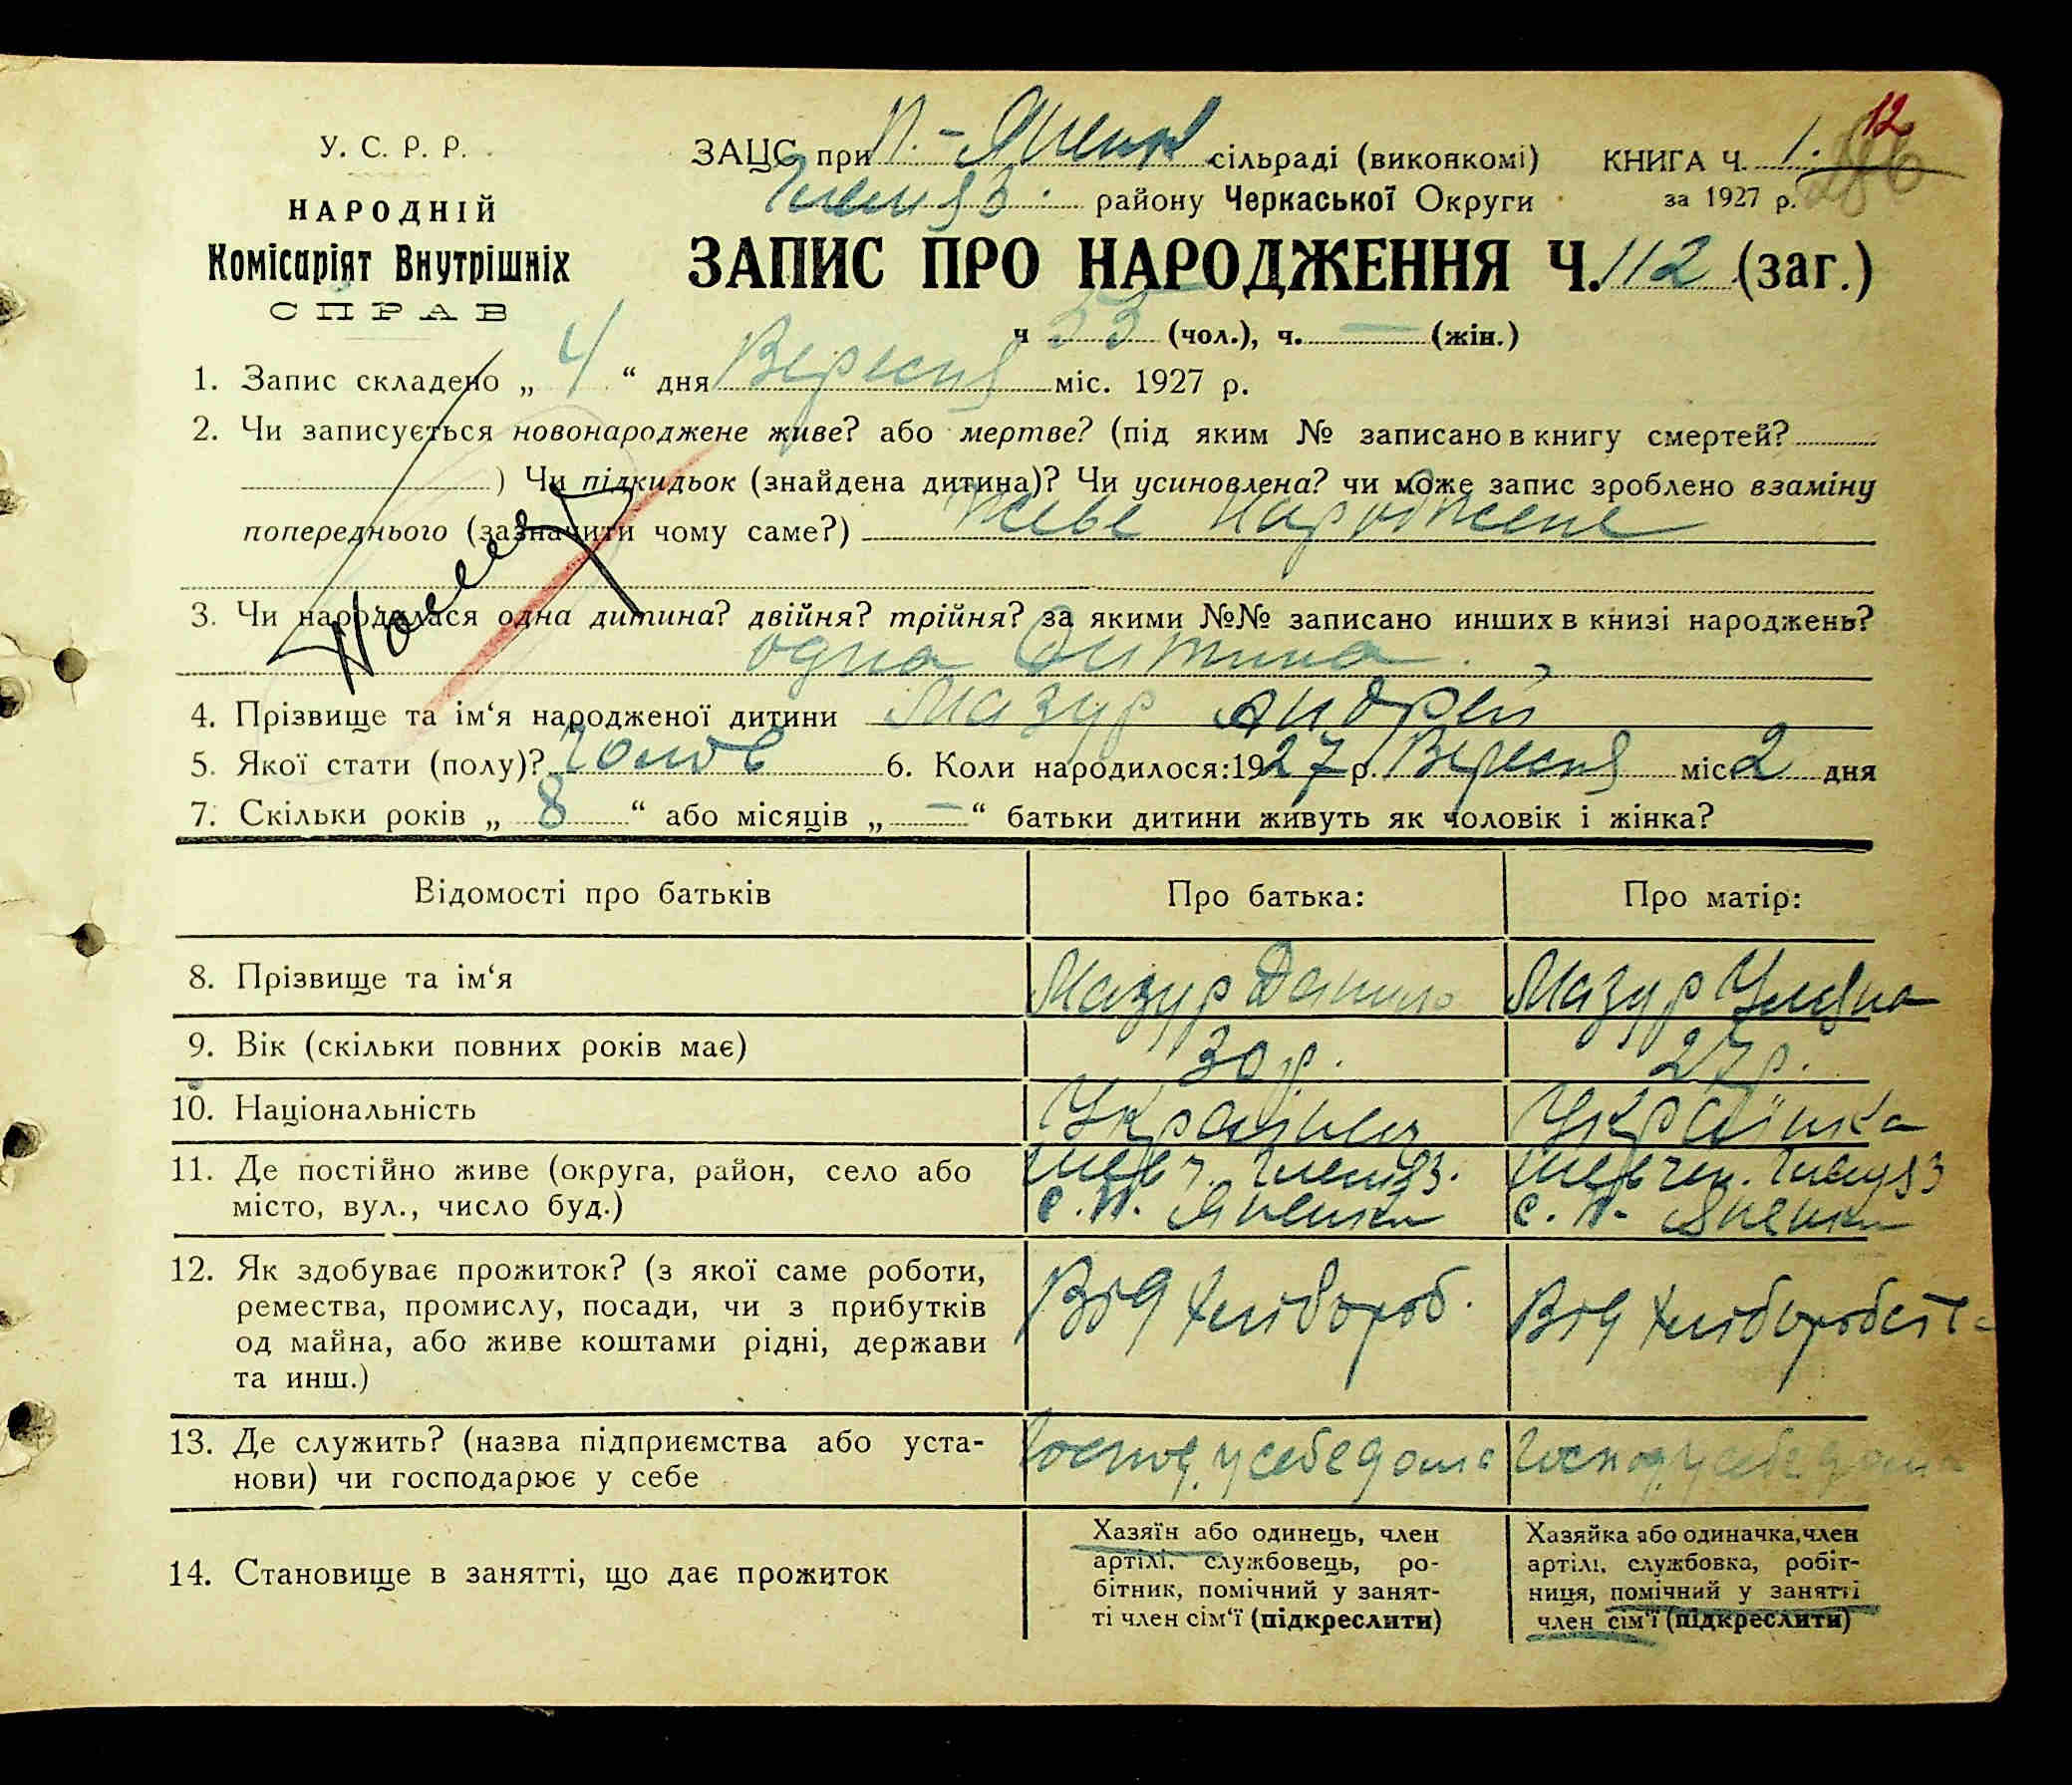 12
У. С. Р. Р.
НАРОДНІЙ
Комісаріят Внутрішніх
СПРАВ
ЗАЦС при сільраді (виконкомі) КНИГА Ч. 1.
району Черкаської Округи за 1927 р.
ЗАПИС ПРО НАРОДЖЕННЯ Ч. 112 (заг.)
ч 53 (чол.), ч. — (жін.)
1. Запис складено „ 4 “ дня Вересня міс. 1927 р.
2. Чи записується новонароджене живе? або мертве? (під яким № записано в книгу смертей?
) Чи підкидьок (знайдена дитина)? Чи усиновлена? чи може запис зроблено взаміну
попереднього (зазначити чому саме?) Живе народжене
3. Чи народилася одна дитина? двійня? трійня? за якими №№ записано инших в книзі народжень?
одна дитина.
4. Прізвище та ім‘я народженої дитини Мазур Андрей
5. Якої стати (полу)? Чолов 6. Коли народилося: 1927 р. Вересня міс 2 дня
7. Скільки років „ 8 “ або місяців „ — “ батьки дитини живуть як чоловік і жінка?
Відомості про батьків Про батька: Про матір:
8. Прізвище та ім‘я Мазур Данило Мазур Уляна
9. Вік (скільки повних років має) 30 р. 27 р.
10. Національність Українец Українка
11. Де постійно живе (округа, район, село або
місто, вул., число буд.)
12. Як здобуває прожиток? (з якої саме роботи,
ремества, промислу, посади, чи з прибутків
од майна, або живе коштами рідні, держави
та инш.)
Від хлібороб. Від хліборобств
13. Де служить? (назва підприємства або уста-
нови) чи господарює у себе
Господ. у себе дома Господ. у себе дома
14. Становище в занятті, що дає прожиток
Хазяїн або одинець, член
артілі, службовець, ро-
бітник, помічний у занят-
ті член сім‘ї (підкреслити)
Хазяйка або одиначка, член
артілі, службовка, робіт-
ниця, помічний у занятті
член сім‘ї (підкреслити)